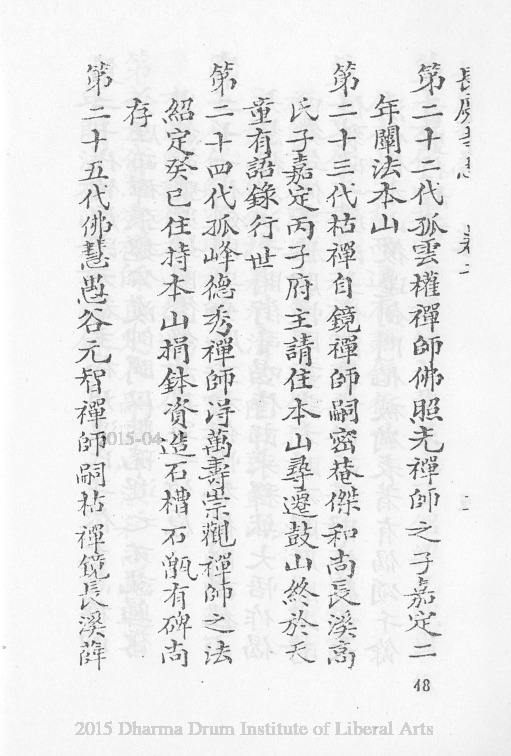 長慶寺志
第二十二代孤雲權禪師佛照光禪師之子嘉定二
年闡法本山
第二十三代枯禪自鏡禪師嗣密菴傑和尚長溪高
氏子嘉定丙子府主請住本山尋遷鼓山終於天
童有語錄行世
第二十四代孤峰德秀禪師得萬壽崇觀禪師之法
紹定癸巳住持本山捐鉢資造石槽石甑有碑尚
存
第二十五代佛慧愚谷元智禪師嗣枯禪鏡長溪薛
48
015-04
2015 Dharma Drum Institute of Liberal Arts